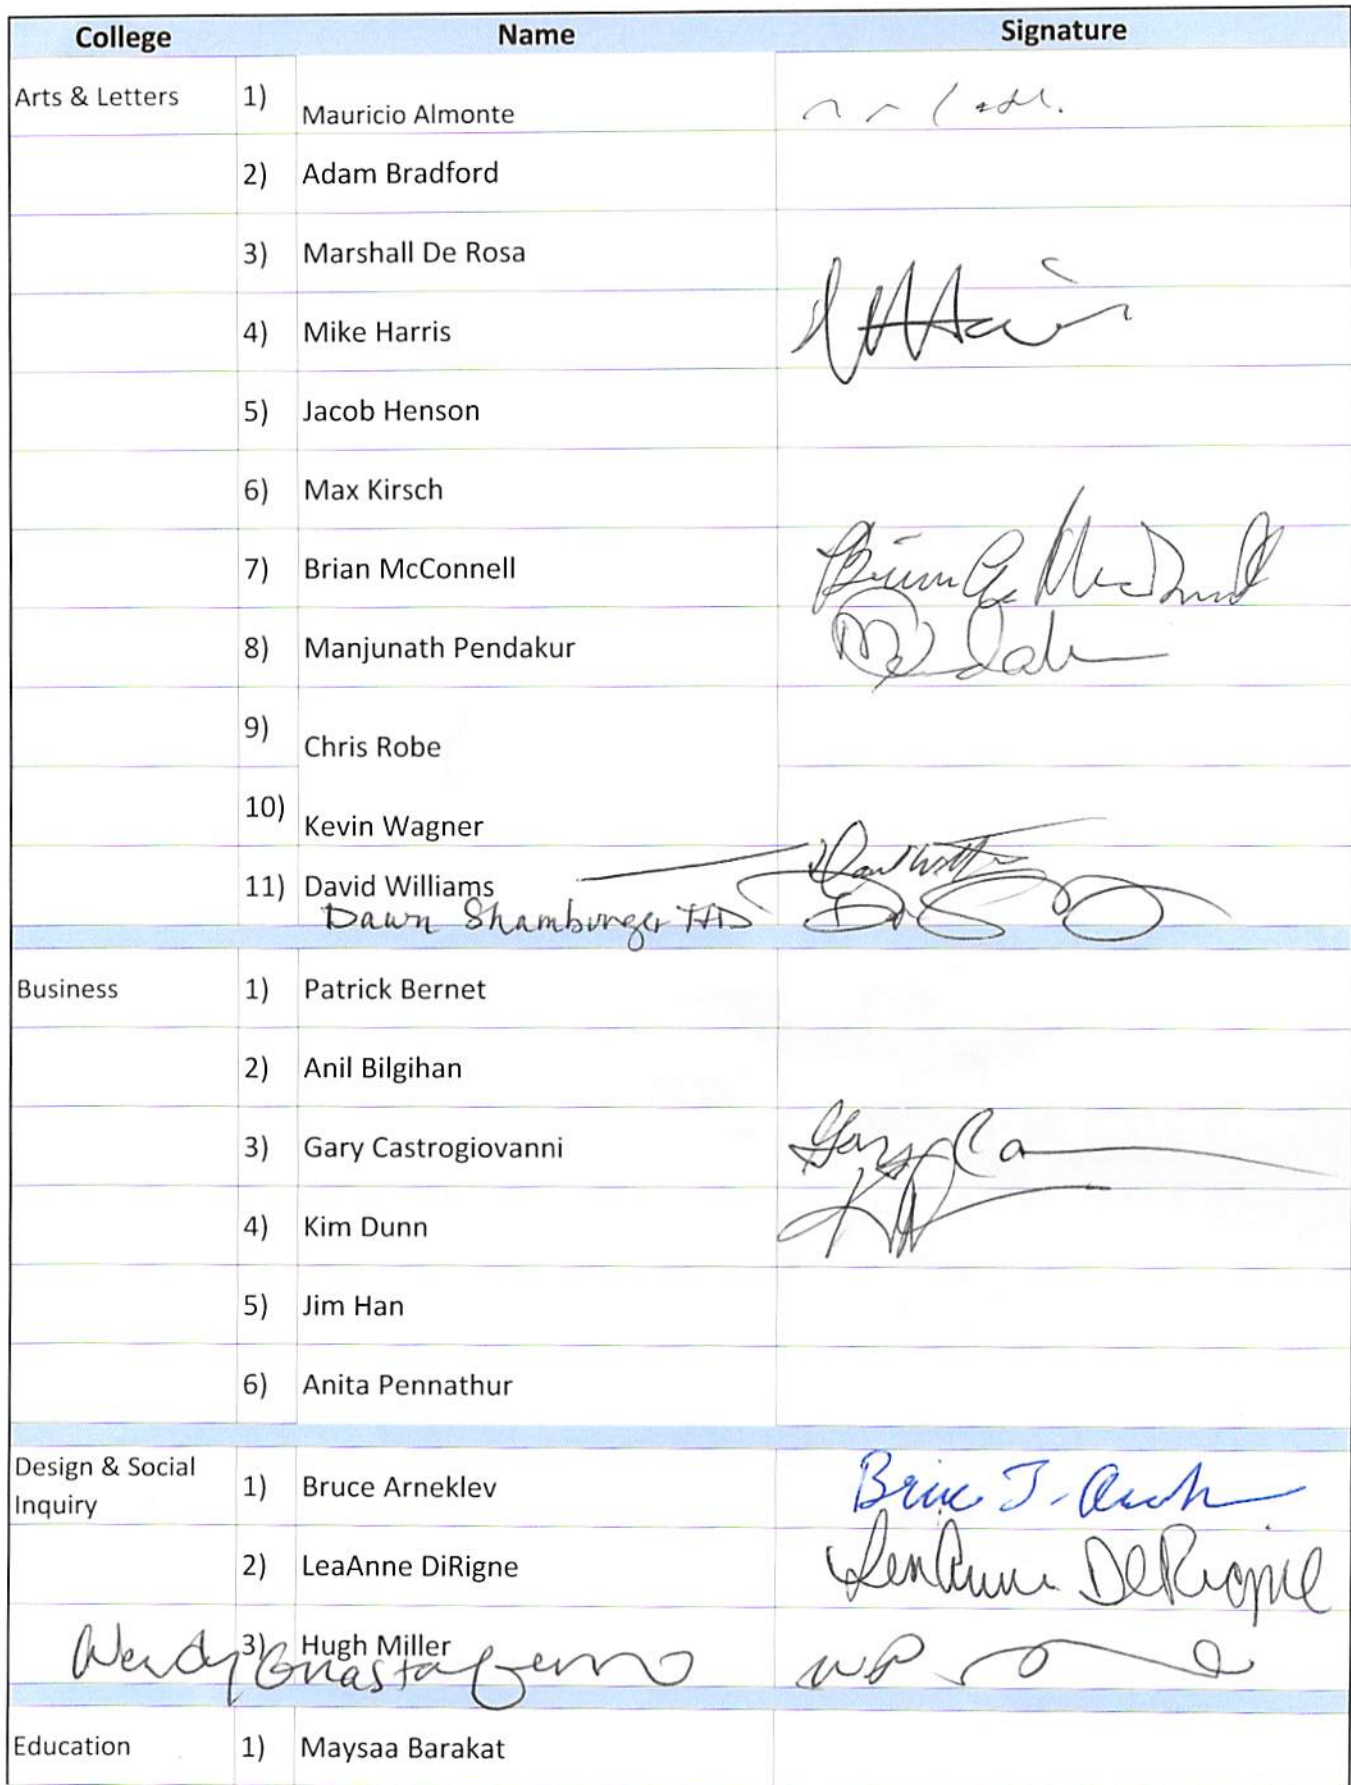 College Name Signature
Arts & Letters 1) Mauricio Almonte
2) Adam Bradford
3) Marshall De Rosa
4) Mike Harris
5) Jacob Henson
6) Max Kirsch
7) Brian McConnell
8) Manjunath Pendakur
9) Chris Robe
10) Kevin Wagner
11) David Williams
Dawn Shamburger
Business 1) Patrick Bernet
2) Anil Bilgihan
3) Gary Castrogiovanni Gary
4) Kim Dunn
5) Jim Han
6) Anita Pennathur
Design & Social Inquiry 1) Bruce Arneklev
2) LeaAnne DiRigne
3) Hugh Miller
Wendy
Education 1) Maysaa Barakat